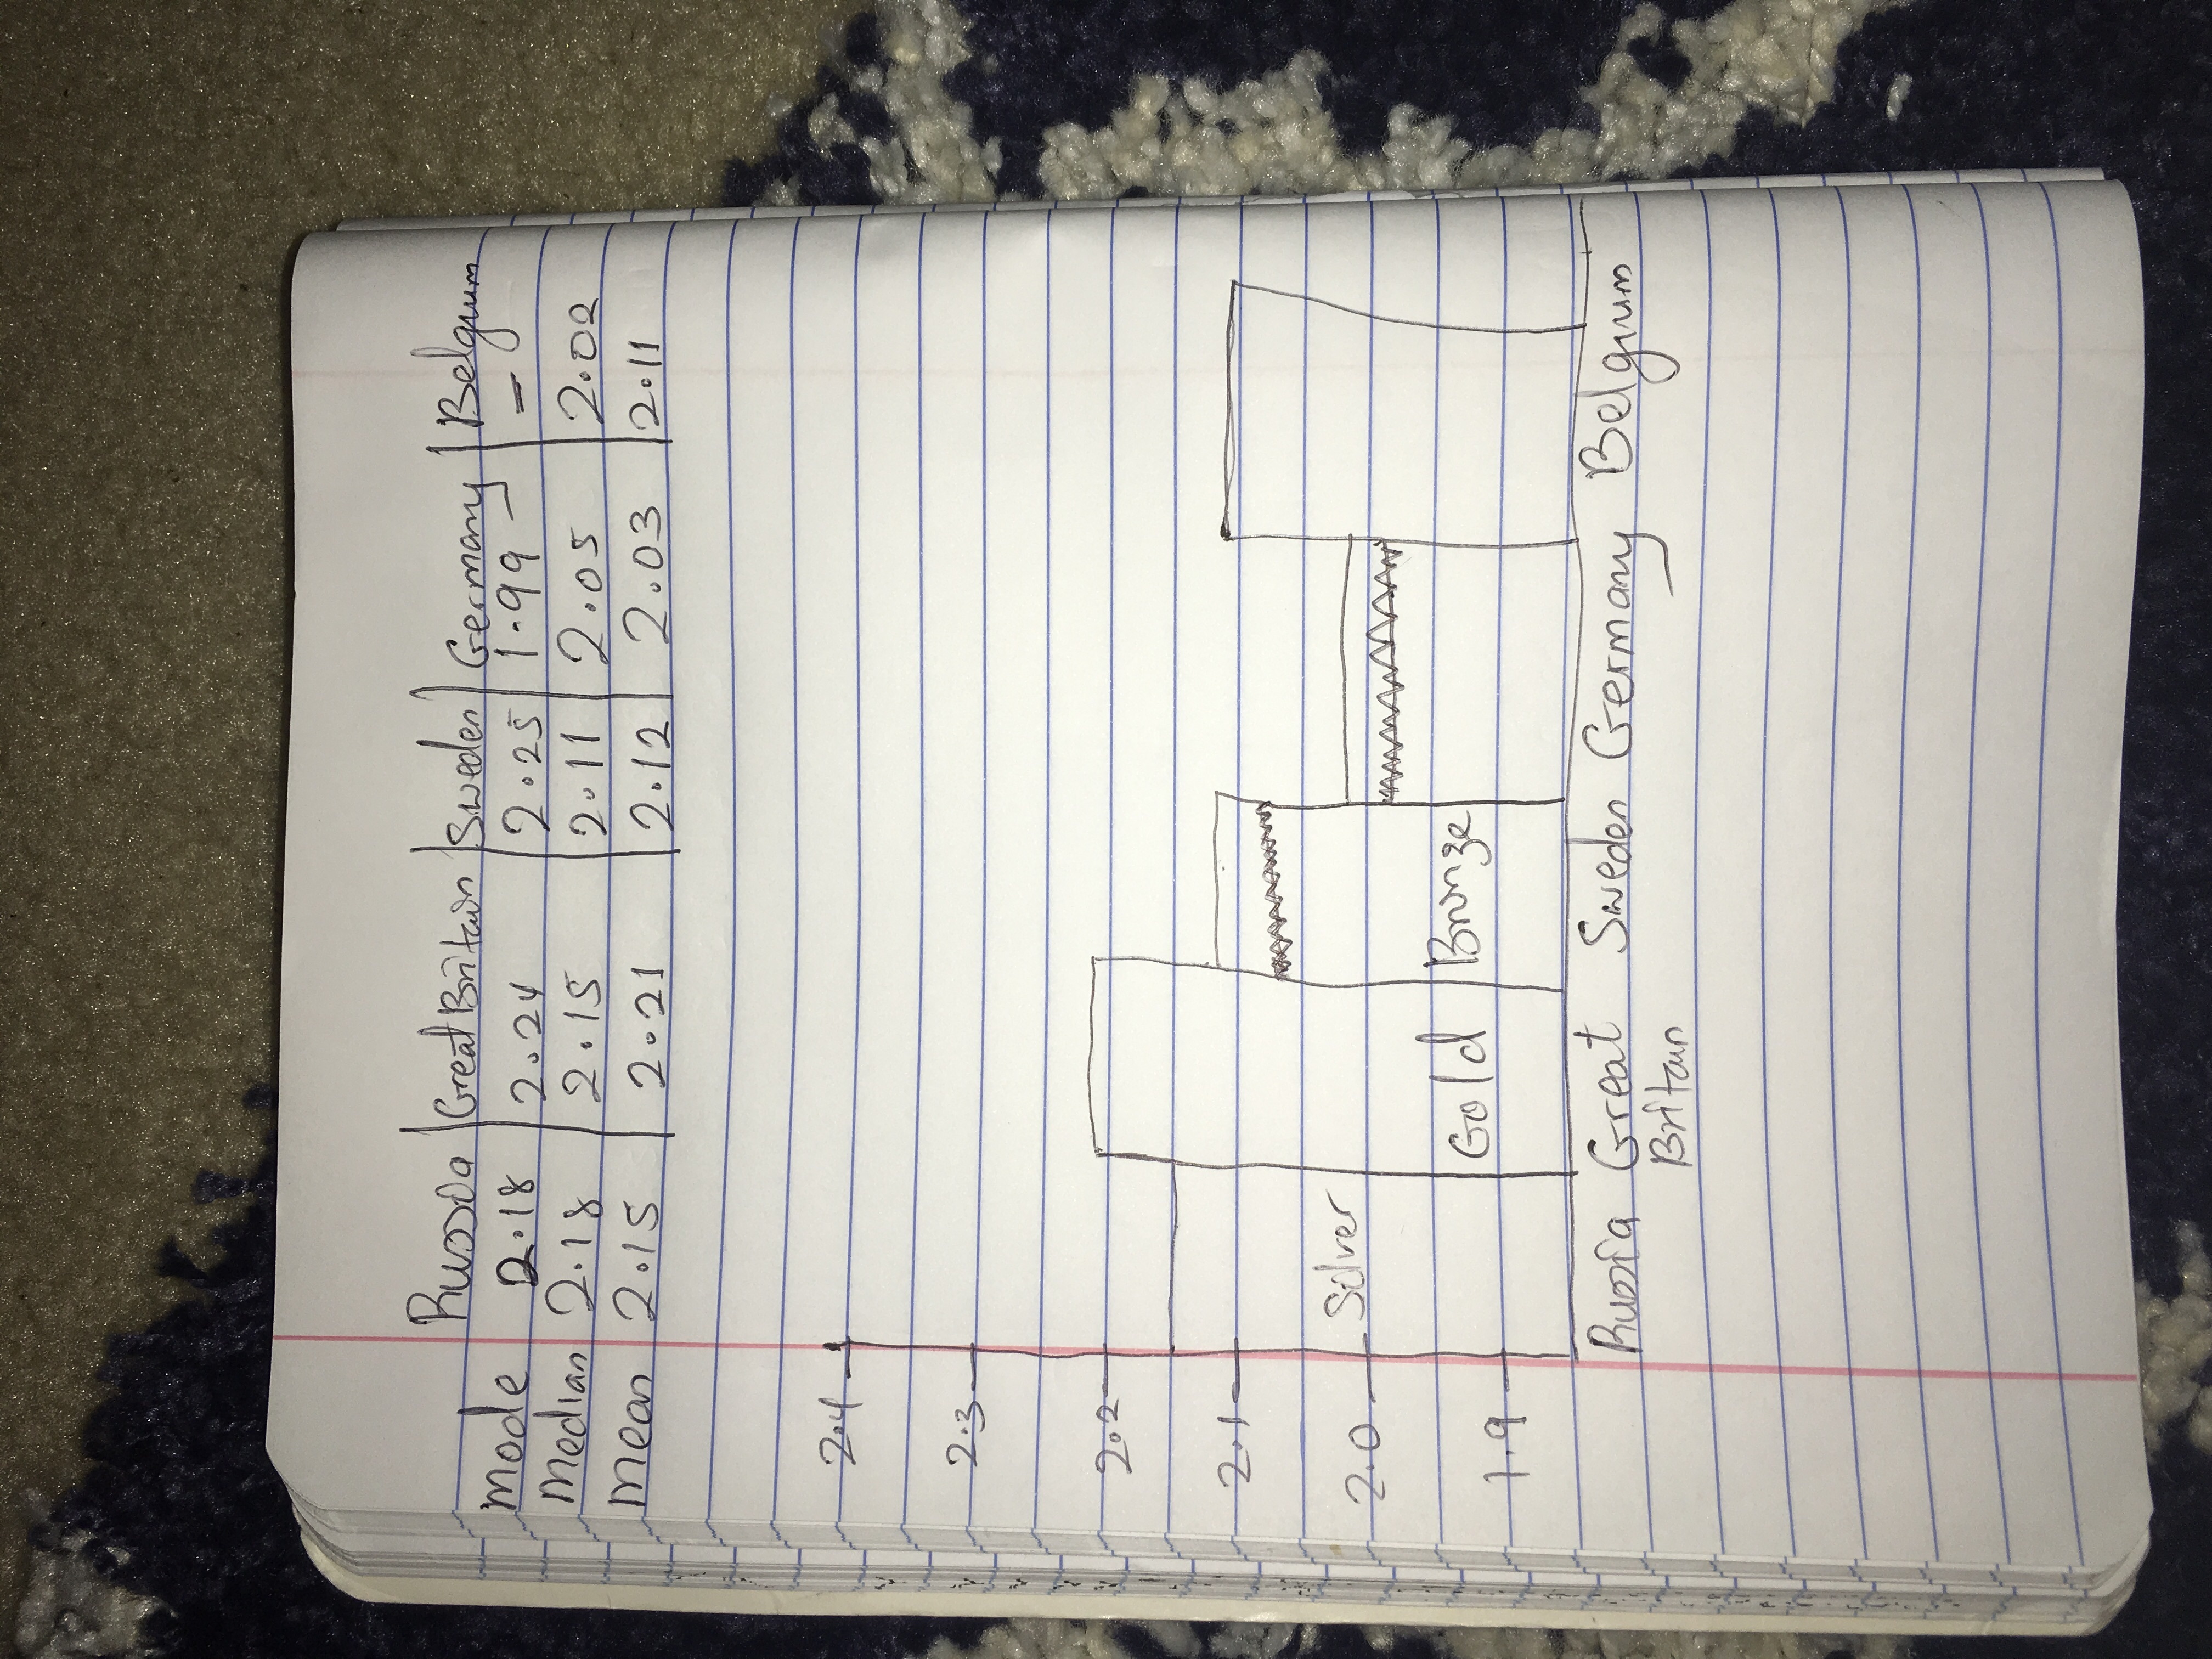 Russia | Great Britain | Sweden | Germany | Belgum
Mode 2.18 2.24 2.25 1.99 -
Median 2.18 2.15 2.11 2.05 2.02
Mean 2.15 2.21 2.12 2.03 2.11
2.4
2.3
2.2
2.1
2.0 Silver
1.9 Gold Bronze
Russia Great Sweden Germany Belgum
Britan